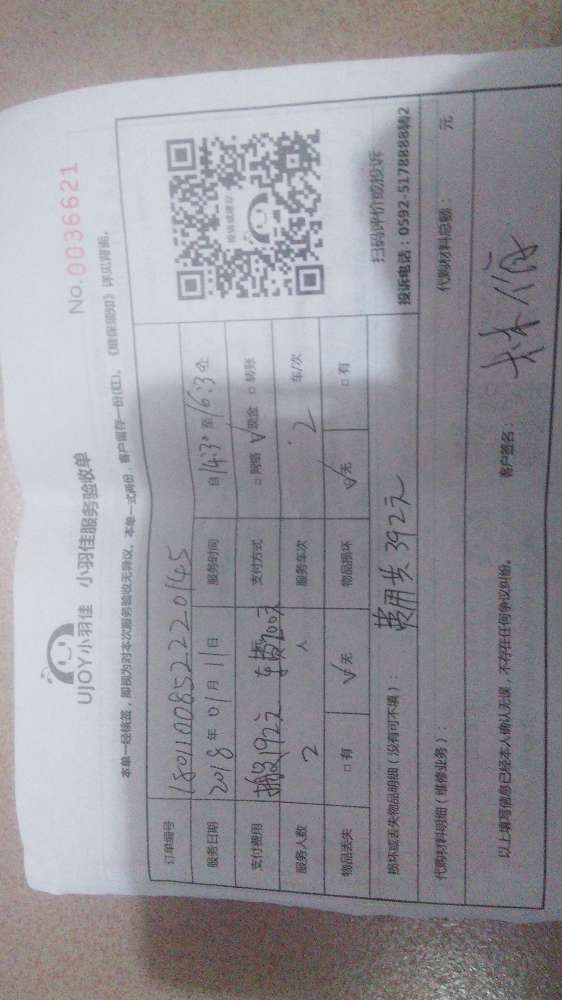 No.0036621
UJOY小羽佳 小羽佳服务验收单
本单一经核签，即视为对本次服务验收无异议。本单一式两份，客户留存一份(红)。《维保须知》详见背面。
订单编号 18011008522220145
服务日期 2018年01月11日 服务时间 自14:30至16:30止
支付费用 搬运192元 车费200元 支付方式 □网络 √现金 □转账
服务人数 2 人 服务车次 2 车/次
物品丢失 □有 √无 物品损坏 √无 □有
扫码评价或投诉
投诉电话：0592-5178888转2
损坏或丢失物品明细（没有可不填）： 费用共392元
代购材料明细（维修业务）： 代购材料总额： 元
以上填写信息已经本人确认无误，不存在任何争议纠纷。 客户签名：